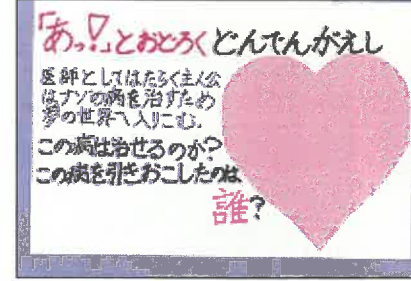 「あっ!」とおどろくどんでんがえし
医師としてはたらく主人公
はナゾの病を治すため
夢の世界へ入りこむ。
この病は治せるのか?
この病を引きおこしたのは
誰?